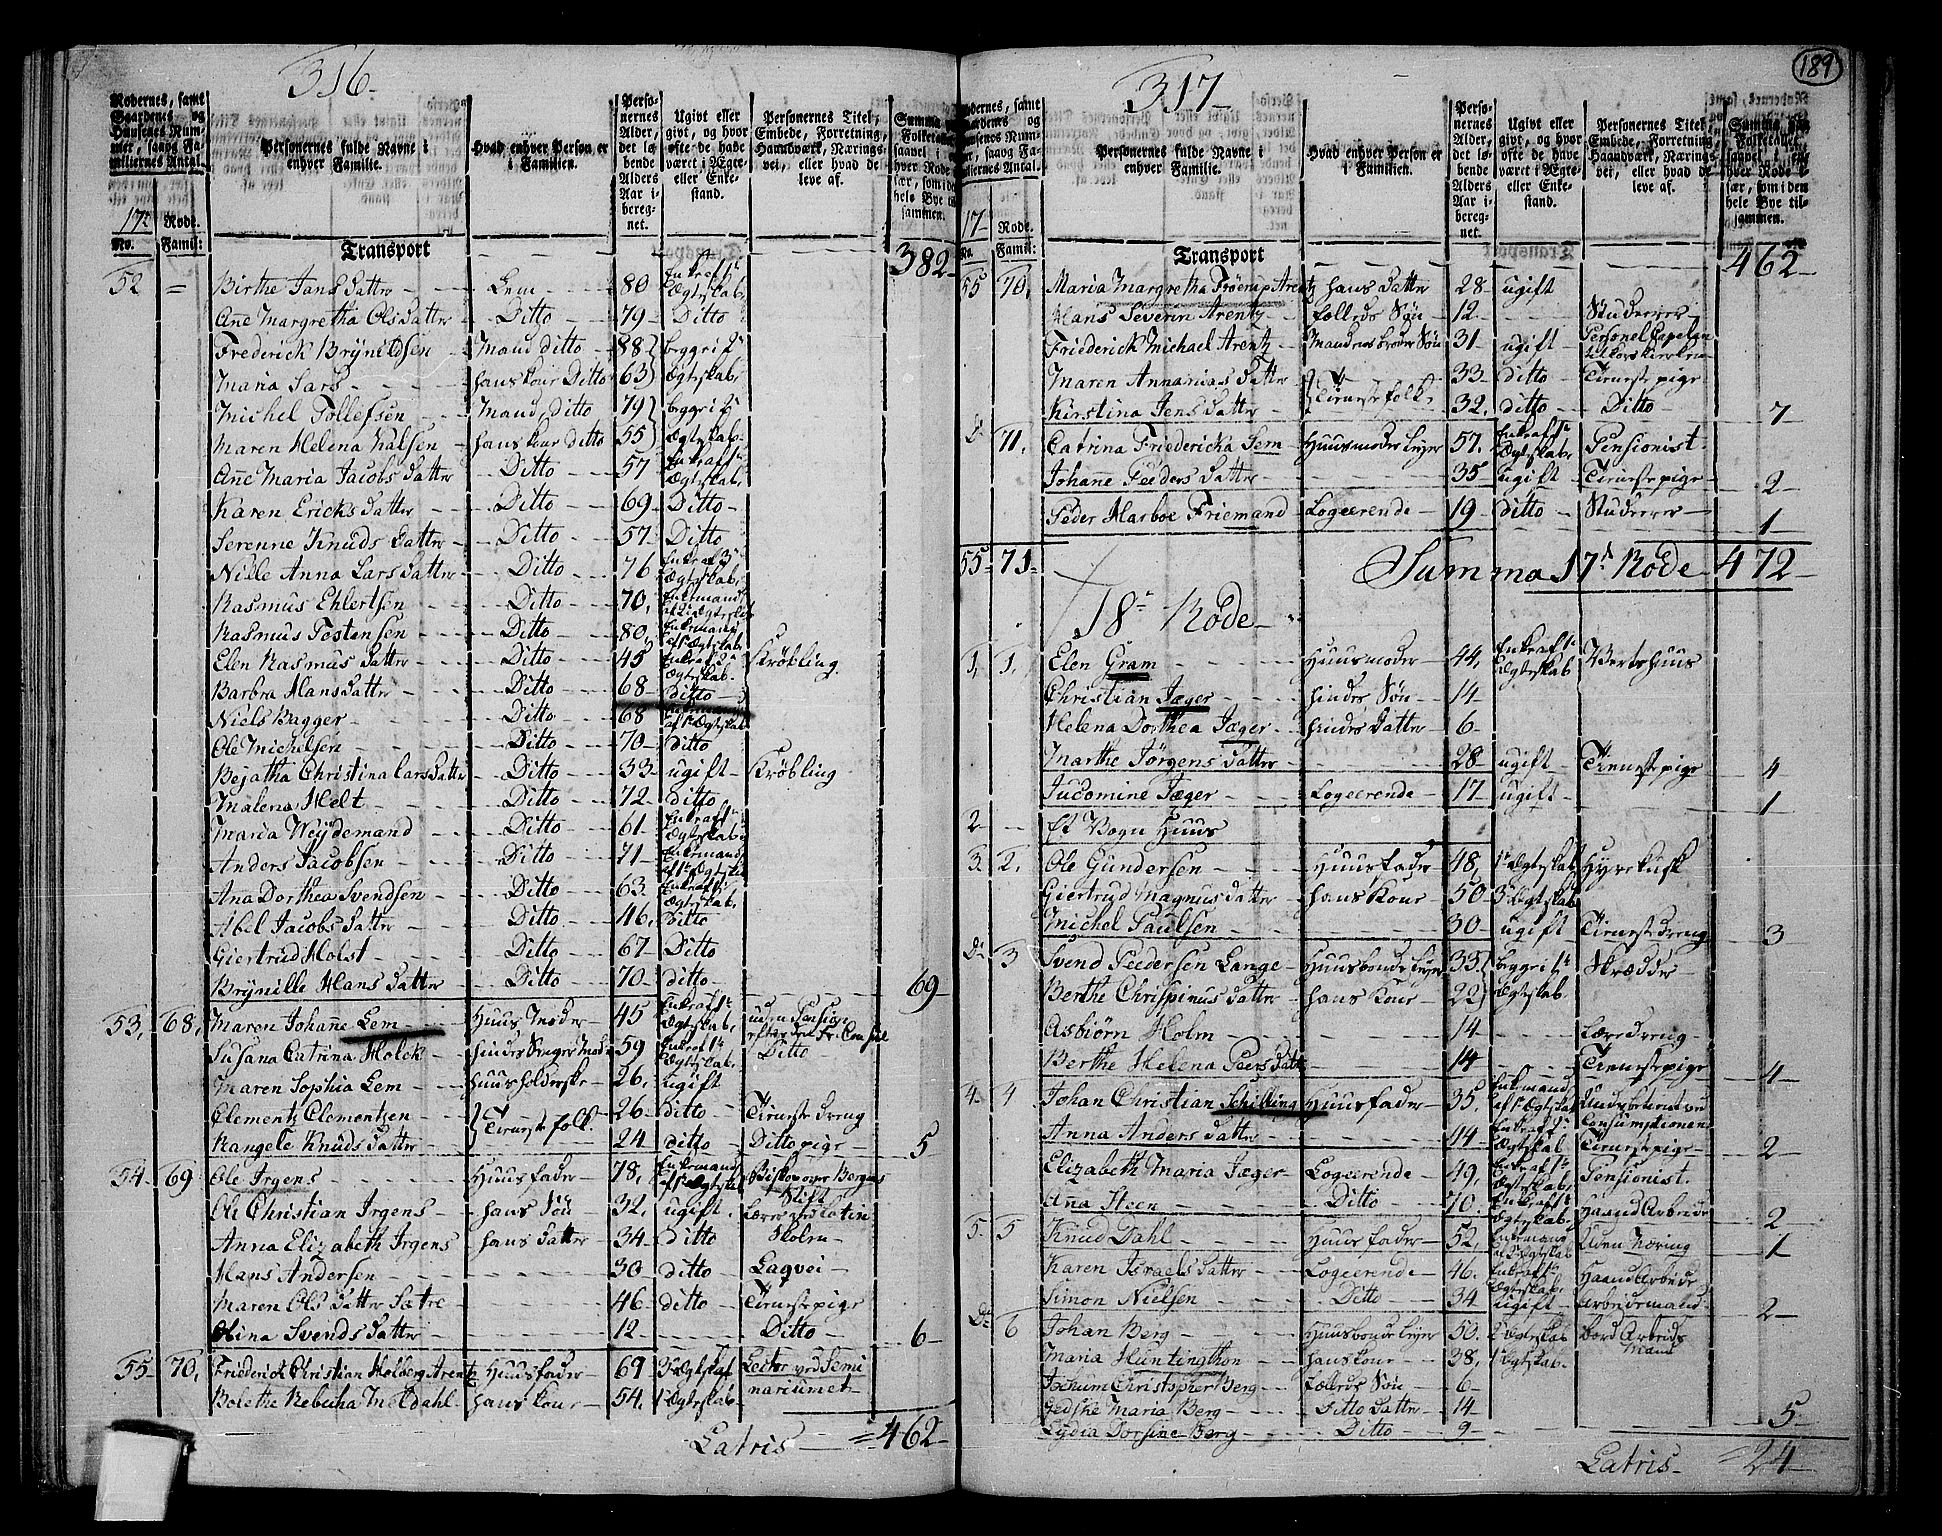 316
Rodernes, samt Gaardenes og Husenes Nummer, saavg Familiernes Antal.
Personernes fulde Navne i enhver Familie.
Hvad enhver Person er i Familien.
Personernes Alder, det løbende Alders Aar iberegnet.
Ugivt eller givt, og hvor ofte de have været i Ægte- eller Enkestand.
Personernes Titel, Embede, Forretning, Haandværk, Næringsvei, eller hvad de leve af.
17 Rode.
No. Famil:
Transport 382
52 = Birthe Jans datter Lem 80 Enke af 1te Ægteskab
Ane Margretha Olsdatter Ditto 79 Ditto
Frederick Brynildsen Mand ditto 88 begge i 2 Ægteskab
Maria Lars hans kone Ditto 63
Michel Tollefsen Mand, ditto 79 begge i 2 Ægteskab
Maren Helena Nalsen hans kone ditto 55
Ane Maria Jacobs datter Ditto 57 Enke af 1 Ægteskab
Karen Ericks datter Ditto 69 Ditto
Serenne Knuds datter Ditto 57 Ditto
Nille Anna Lars datter Ditto 76 Enke af 3 Ægteskab
Rasmus Ehlertsen Ditto 70, Enkemand af 2 Ægteskab
Rasmus Testensen Ditto 80, Enkemand af 1 Ægteskab
Elen Rasmus datter Ditto 45 Enke af 2 Ægteskab Krøbling
Barbra Hansdatter Ditto 68 ditto
Niels Bagger Ditto 68 Enkemand af 1 Ægteskab
Ole Michelsen Ditto 70 ditto
Bejatha Christina Larsdatter Ditto 33 ugift Krøbling
Malena Helt Ditto 72 ditto
Maria Weydemand Ditto 61 Enke af 1 Ægteskab
Anders Jacobsen Ditto 71 Enkemand af 1 Ægteskab
Ana Dorthea Svendsen Ditto 63 Enke af 1 Ægteskab
Abel Jacobs datter Ditto 46 Ditto
Giertrud Holst Ditto 67 Ditto
Brynille Hans datter Ditto 70 ditto 69
53, 68, Maren Johanne Lem Huus Moder 45 Enke af 1te Ægteskab uden Pension efter Consul
Susana Catrina Holck hindes Moder 59 Enke af 1te Ægteskab Ditto
Maren Sophia Lem Huusholderske 26, ugift
Clementz Clementzen Tieneste folk 26 ditto Tieneste dreng
Rangele Knuds datter 24 ditto Ditto pige 5
54 69 Ole Irgens Huusfader 78, Enkemand af 1 Ægteskab Biskop over Bergens Stift
Ole Christian Irgens hans Søn 32, ugift Lærer ved latin Skolen
Anna Elizabeth Irgens hans datter 34 ditto
Hans Andersen 30 ditto Laqvei
Maren Ols datter Satre 46 ditto Tieneste pige
Olina Svends datter 12 Ditto 6
55 70, Friederich Christian Holberg Arentz Huusfader 69 Ægteskab Lector ved Seminariumet
Bolethe Rebecha Meldahl hans kone 54, 1 Ægteskab
Latris 462
317
189
Rodernes, samt Gaardenes og Husenes Nummer, saavg Familiernes Antal.
Personernes fulde Navne i enhver Familie.
Hvad enhver Person er i Familien.
Personernes Alder, det løbende Alders Aar iberegnet.
Ugivt eller givt, og hvor ofte de have været i Ægte- eller Enkestand.
Personernes Titel, Embede, Forretning, Haandværk, Næringsvei, eller hvad de leve af.
17 Rode.
No. Famil:
Transport 462
55 70, Maria Margretha Frøerup Arentz hans datter 28 ugift
Hans Severin Arentz fælleds Søn 12 Studerer
Friederick Michael Arentz Mandens broder Søn 31 ugift Personel Capelan til Korskirken
Maren Annanias datter Tieneste folk 33 ditto Tieneste pige
Kirstina Jens datter 32, ditto Ditto 7
Do 71, Catrina Friedericka Lem Huusmoder Leyer 57, Enke af 1te Ægteskab Pensionist
Johane Peeders datter 35 ugift Tieneste pige 2
Peder Harboe Friemand Logerende 19 ditto Studerer 1
55 71 Summa 17d Rode 472
18 Rode
1, 1, Elen Gram Huusmoder 44, Enke af 1 Ægteskab Vertshuus
Christian Jæger hindes Søn 14
Helena Dorthea Jæger hindes datter 6
Marthe Jørgens datter 28 ugift Tieneste pige 4
Jucomine Jæger Logerende 17 ugift 1
2 Et Vogn Huus
3. 2. Ole Gundersen Huusfader 48, 1 Ægteskab Hyrekusk
Giertrud Magnus datter hans Kone 50 3 Ægteskab
Michel Paulsen 30 ugift Tieneste dreng 3
Do 3 Svend Peedersen Lange Huusbonde Leyer 35 begge i 1te Ægteskab Skrædder
Berthe Chrispinus datter hans Kone 22
Asbiørn Holm 14 Læredreng
Berthe Helena Peers datter 14 Tieneste pige 4
4. 4 Johan Christian Schilling Huusfader 35, Enkemand af 1 Ægteskab Underbetient ved Consumptionen
Anna Anders datter 44 Enke af 1 Ægteskab Tieneste pige 2
Elizabeth Maria Jæger Logerende 49, Enke af 1te Ægteskab Pensionist.
Anna Steen Ditto 70. Enke af 1te Ægteskab Haand Arbeide 2
5. 5 Knud Dahl Huusfader 52, Enkemand af 1 Ægteskab Uden Næring 1
Karen Israels datter Logerende 46. Enke af 1te Ægteskab Haand Arbeide
Simon Nielsen Ditto 34 ugift Arbeidsmand 2
Do 6 Johan Berg Huusbonde Leyer 50. 2 Ægteskab Bord Arbeids Mand
Maria Huntingthon hans kone 38, 1 Ægteskab
Jochum Christopher Berg fælleds Søn 6
Gedske Maria Berg Ditto datter 14
Lydia Dorsine Berg Ditto 9 5
Latris 24